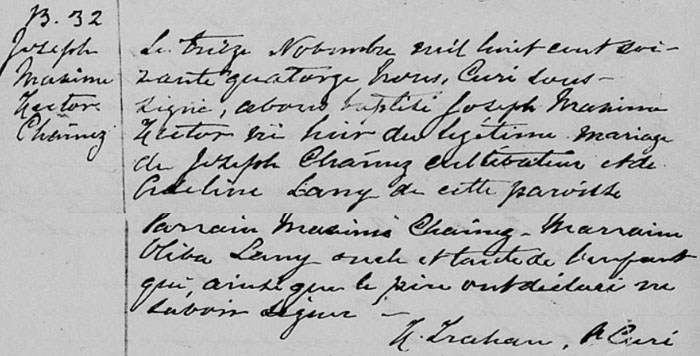 B. 32
Joseph
Maxime
Hector
Chaînez
Le treize Novembre mil huit cent soi-
xante quatorze Nous, Curé sous-
signé, avons baptisé Joseph Maxime
Hector né hier du légitime mariage
de Joseph Chaînez cultivateur et de
Adeline Lany de cette paroisse
Parrain Maxime Chaînez - Marraine
Oliva Lany oncle et tante de l'enfant
qui, ainsi que le père ont déclaré ne
savoir signer -
N. Trahan, Ptre Curé